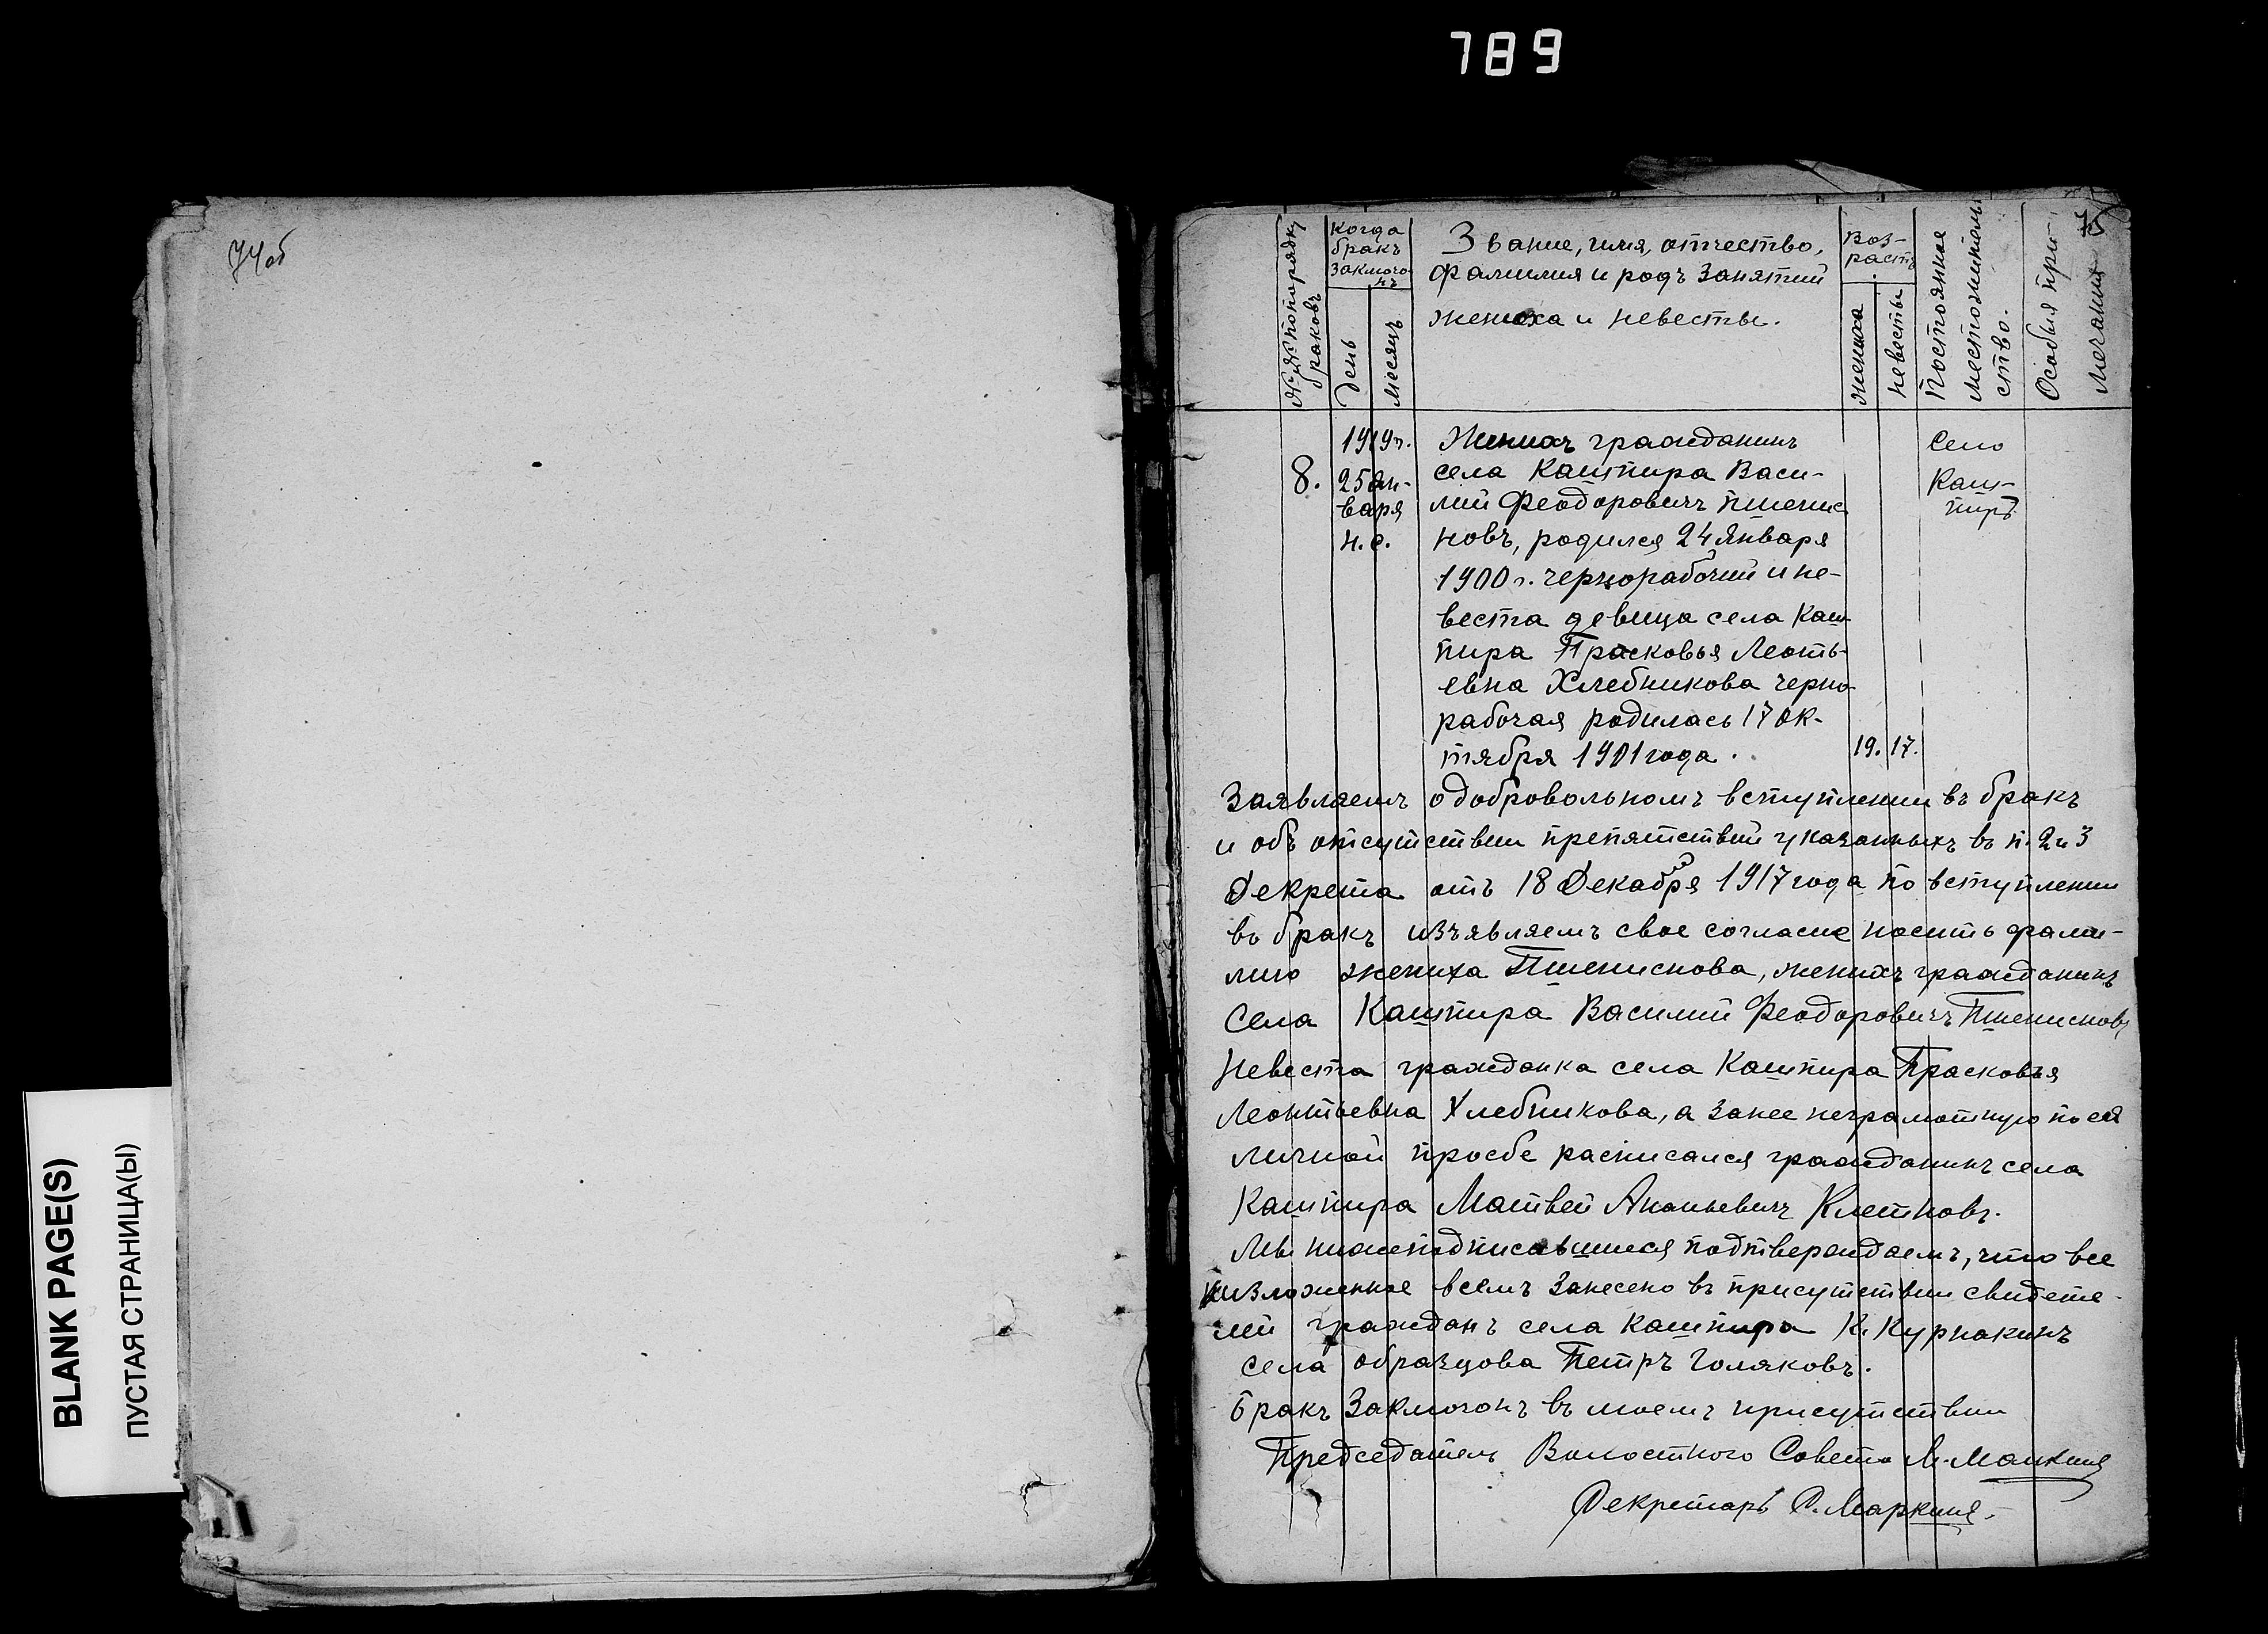 789
74об
75
№№ по порядку
браковъ
когда
бракъ
заключо-
нъ
День
Месяцъ
Звание, имя, отчество,
фамилия и родъ занятий
жениха и невесты.
Воз-
растъ
жениха
невесты
Постоянное
местожитель
ство.
Особыя при-
мечания
1919г.
8.
25 Ян-
варя
н.с.
Женихъ гражданинъ
села Кашпира Васи-
лий Феодоровичъ Пшенис
новъ, родился 24 Января
1900г. чернорабочий и не-
веста девица села Каш
пира Прасковья Леоть-
евна Хлебникова черно-
рабочая родилась 17 Ок-
тября 1901 года.
19.
17.
Село
Каш-
пиръ
Заявляемъ о добровольномъ вступлении въ бракъ
и объ отсутствии препятствий указанныхъ въ п. 2 и 3
Декрета отъ 18 Декабря 1917 года по вступлении
въ бракъ изъявляемъ свое согласие носить фами-
лию жениха Пшениснова, женихъ гражданинъ
Села Кашпира Василий Феодоровичъ Пшенисновъ
Невеста гражданка села Кашпира Прасковья
Леонтьевна Хлебникова, а за нее неграмотную по ея
личной просбе расписался гражданинъ села
Кашпира Матвей Ананьевичъ Клетновъ.
Мы нижеподписавшиеся подтверждаемъ, что все
изложенное всемъ занесено въ присутствии свидете-
лей гражданъ села Кашпира К. Курпакинъ
села Образцова Петръ Голяковъ.
Бракъ Заключонъ въ моемъ присутствии
Председатель Волостного Совета
Секретарь С. Маркинъ.
BLANK PAGE(S)
ПУСТАЯ СТРАНИЦА(Ы)